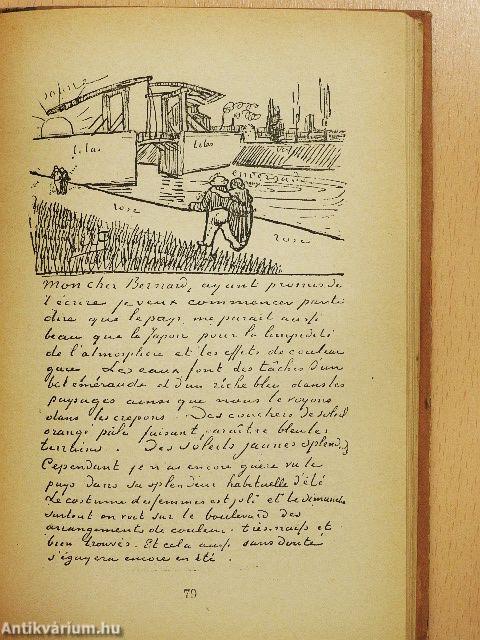 jaune
lilas
lilas
emeraude
rose
rose
mon cher Bernard, ayant promis de
t'écrire je veux commencer par te
dire que le pays me parait aussi
beau que le Japon pour la limpidité
de l'atmosphère et les effets de couleur
gaie. Les eaux font des tâches d'un
bel éméraude et d'un riche bleu dans les
paysages ainsi que nous le voyons
dans les crepons. Des couchers de soleil
orangé pâle faisant paraître bleu les
terrains. Des soleils jaunes splend.
Cependant je n'ai encore guère vu le
pays dans sa splendeur habituelle d'été
Le costume des femmes est joli et le dimanche
surtout on voit sur le boulevard des
arrangements de couleur très naifs et
bien trouvés. Et cela aussi sans doute
s'égayera encore en été.
79
Antikvárium.hu